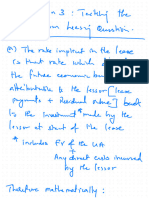 n 3 : Tackling the
Leasing Question.
(a) The rate implicit in the lease
is that rate which discounts
the future economic benefits
attributable to the lessor [lease
payments + Residual value] back
to the investment made by the
lessor at start of the lease
* includes FV of the UA
+
Any direct costs incurred
by the lessor
Therefore mathematically :